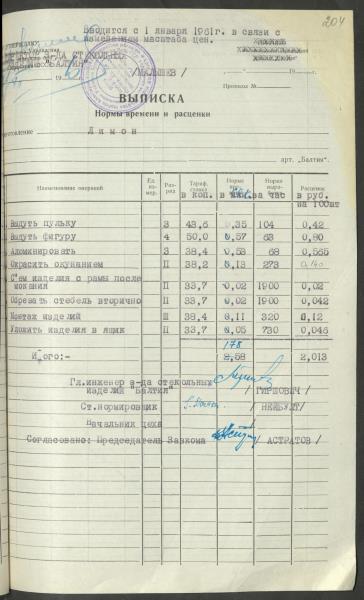 204
Вводится с 1 января 1961г. в связи с
изменением масштаба цен.
/МАЛЫШЕВ /
Протокол №
ВЫПИСКА
Нормы времени и расценки
Лимон
арт. „Балтик"
Наименование операций
Ед. измер.
Разряд
Тариф. ставка
в коп.
Норма
Норма
за час
Расценок
в руб.
на 100шт
Выдуть пульку 3 43,6 0,35 104 0,42
Выдуть фигуру 4 50,0 0,57 63 0,80
Алюминировать 3 38,4 0,53 68 0,565
Окрасить окунанием П 38,2 0,13 273 0,140
С'ем изделия с рамы после
мокания П 33,7 0,02 1900 0,02
Обрезать стебель вторично П 33,7 0,02 1900 0,042
Монтаж изделий Ш 38,4 0,11 320 0,12
Уложить изделия в ящик П 33,7 0,05 730 0,046
178
Итого:- 2,58 2,013
Гл.инженер з-да стекольных
изделий "Балтия" / ГИРШОВИЧ /
Ст.нормировщик / НЕЙБУЛТ/
Начальник цеха
Согласовано: Председатель Завкома / АСТРАТОВ /